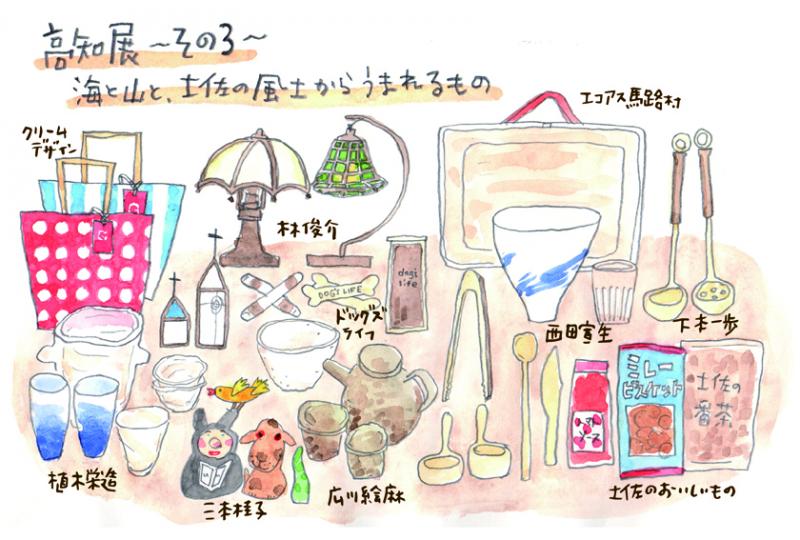 高知展 〜その3〜
海と山と、土佐の風土からうまれるもの
エコアス馬路村
クリーム
デザイン
林俊介
dog's
life
DOG'S LIFE
ドッグズ
ライフ
西田宣生
下本一歩
ミレー
ビスケット
土佐の
番茶
植木栄造
三本桂子
広川絵麻
土佐のおいしいもの